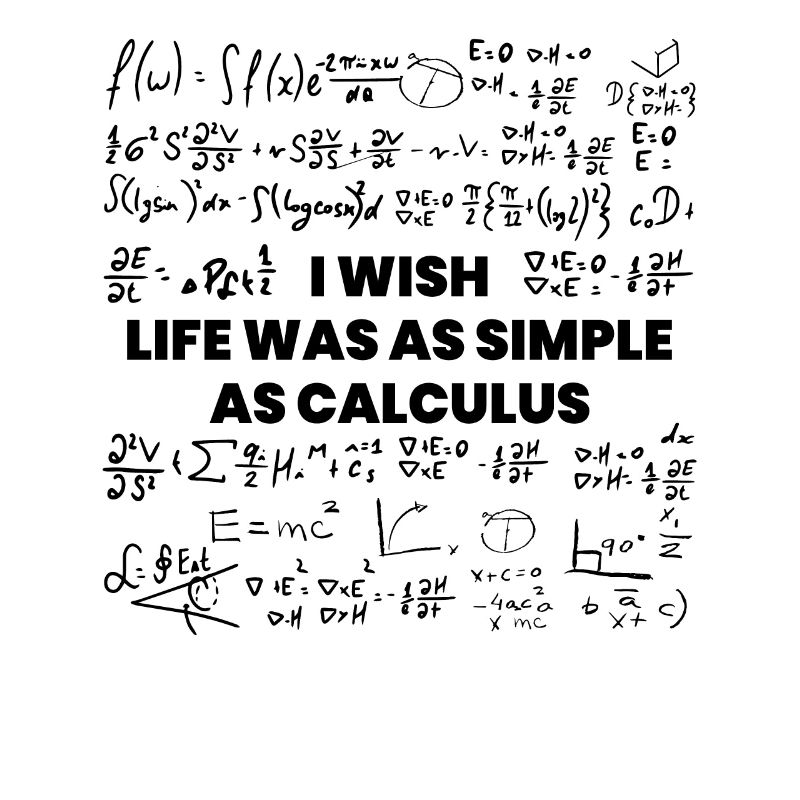 f(w) = ∫f(x)e -2π i xw / dQ a E=0 ∇·H=0
∇·H = 1/e ∂E/∂t D{∇·H=0} ∇×H=
1/2 σ² S² ∂²V/∂S² + r S ∂V/∂S + ∂V/∂t - r·V = ∇·H=0 ∇×H= 1/e ∂E/∂t E=0 E=
∫(lgsin)²dx - ∫(logcosx)²d ∇+E=0 ∇×E π/2 {π/12+(log2)²} c₀D+
∂E/∂t = 1/2 I WISH ∇+E=0 ∇×E = - 1/e ∂H/∂t
LIFE WAS AS SIMPLE
AS CALCULUS
∂²V/∂S² Σ M ∇+E=0 ∇×E - 1/e ∂H/∂t ∇·H=0 ∇×H= 1/e ∂E/∂t dx
E=mc² x a 90° x₁/2
∇+E² = ∇×E² = - 1/e ∂H/∂t
∇·H ∇×H
x+c=0
-4ac²a b a x+ c)
x mc